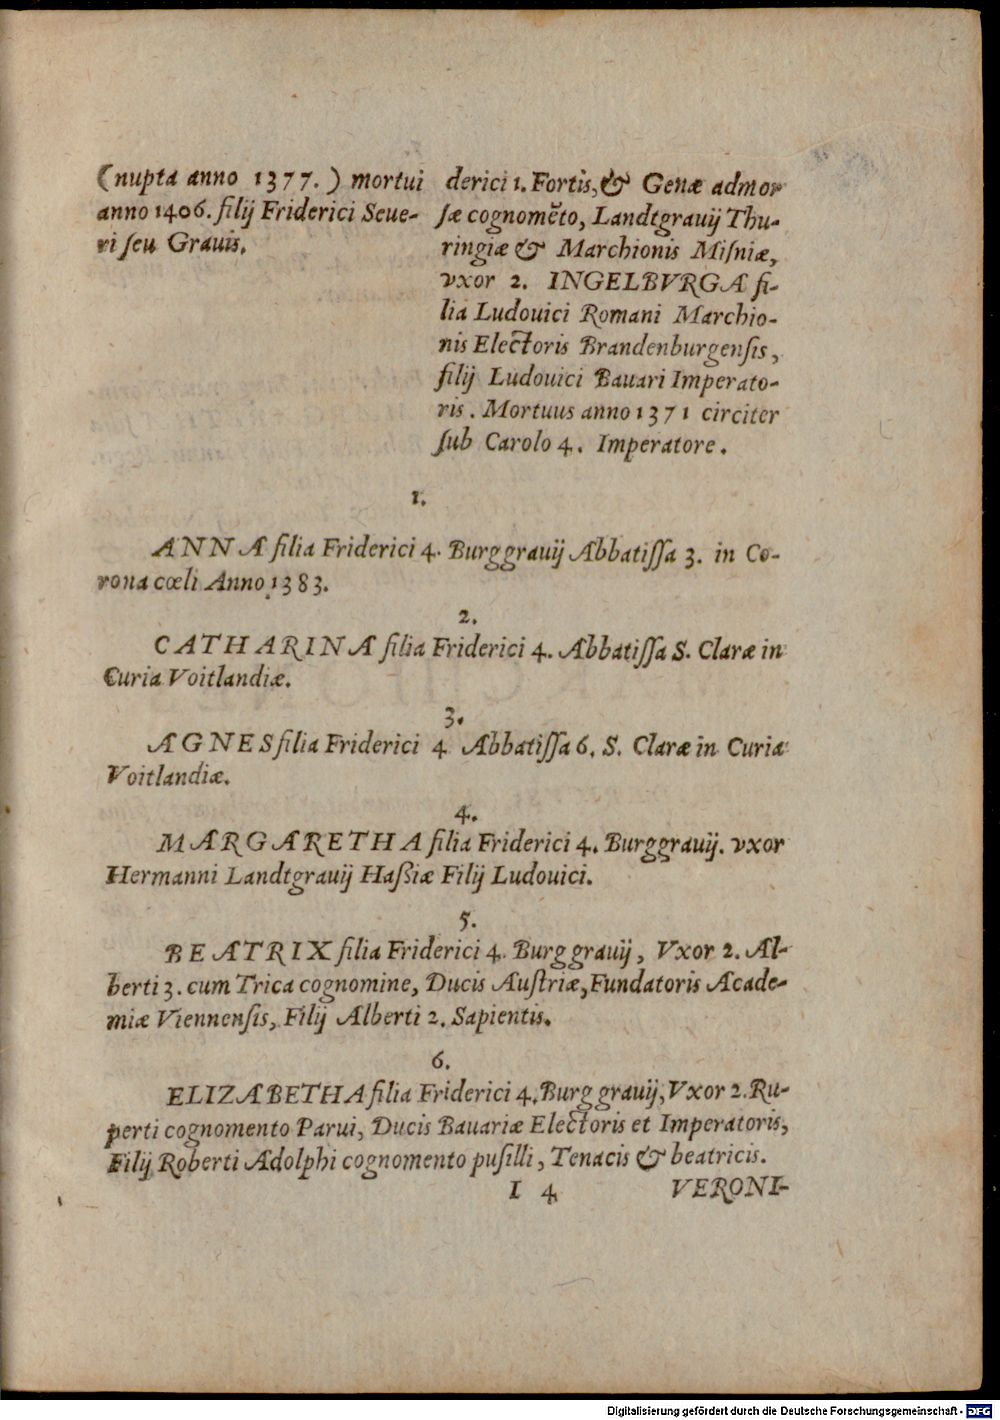 (nupta anno 1377.) mortui
anno 1406. filij Friderici Seue-
ri ſeu Grauis.
derici 1. Fortis, & Genæ admor
ſæ cognomẽto, Landtgrauij Thu-
ringiæ & Marchionis Miſniæ,
vxor 2. INGELBVRGA fi-
lia Ludouici Romani Marchio-
nis Electoris Brandenburgenſis,
filij Ludouici Bauari Imperato-
ris. Mortuus anno 1371 circiter
ſub Carolo 4. Imperatore.
1.
ANNA filia Friderici 4. Burggrauij Abbatiſſa 3. in Co-
rona cœli Anno 1383.
2.
CATHARINA filia Friderici 4. Abbatiſſa S. Claræ in
Curia Voitlandiæ.
3.
AGNES filia Friderici 4 Abbatiſſa 6. S. Claræ in Curia
Voitlandiæ.
4.
MARGARETHA filia Friderici 4. Burggrauij. vxor
Hermanni Landtgrauij Haßiæ Filij Ludouici.
5.
BEATRIX filia Friderici 4. Burggrauij, Vxor 2. Al-
berti 3. cum Trica cognomine, Ducis Auſtriæ, Fundatoris Acade-
miæ Viennenſis, Filij Alberti 2. Sapientis.
6.
ELIZABETHA filia Friderici 4. Burggrauij, Vxor 2. Ru-
perti cognomento Parui, Ducis Bauariæ Electoris et Imperatoris,
Filij Roberti Adolphi cognomento puſilli, Tenacis & beatricis.
I 4 VERONI-
Digitalisierung gefördert durch die Deutsche Forschungsgemeinschaft - DFG